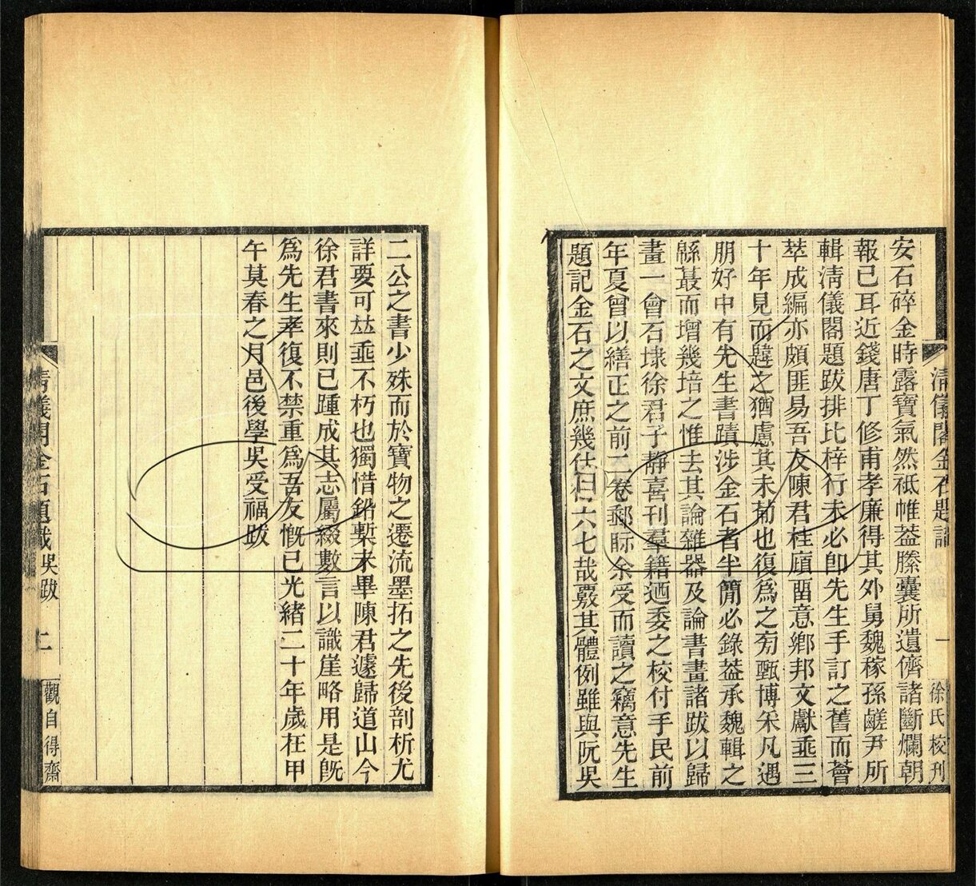 安石碎金時露寶氣然祇帷葢縢囊所遺儕諸斷爛朝
報已耳近錢唐丁修甫孝廉得其外舅魏稼孫鹺尹所
輯淸儀閣題跋排比梓行未必卽先生手訂之舊而薈
萃成編亦頗匪易吾友陳君桂廎畱意鄕邦文獻垂三
十年見而韙之猶慮其未葡也復爲之旁甄博采凡遇
朋好中有先生書蹟涉金石者半簡必錄葢承魏輯之
緜蕞而增幾培之惟去其論雜器及論書畫諸跋以歸
畫一會石埭徐君子靜喜刊羣籍迺委之校付手民前
年夏曾以繕正之前二卷郵眎余受而讀之竊意先生
題記金石之文庶幾估什六七哉覈其體例雖與阮吳
淸儀閣金石題識
一
徐氏校刊
二公之書少殊而於寶物之遷流墨拓之先後剖析尤
詳要可竝垂不朽也獨惜鉛槧未畢陳君遽歸道山今
徐君書來則已踵成其志屬綴數言以識崖略用是旣
爲先生幸復不禁重爲吾友慨已光緒二十年歲在甲
午莫春之月邑後學吳受福跋
淸儀閣金石題識
吳跋
二
觀自得齋